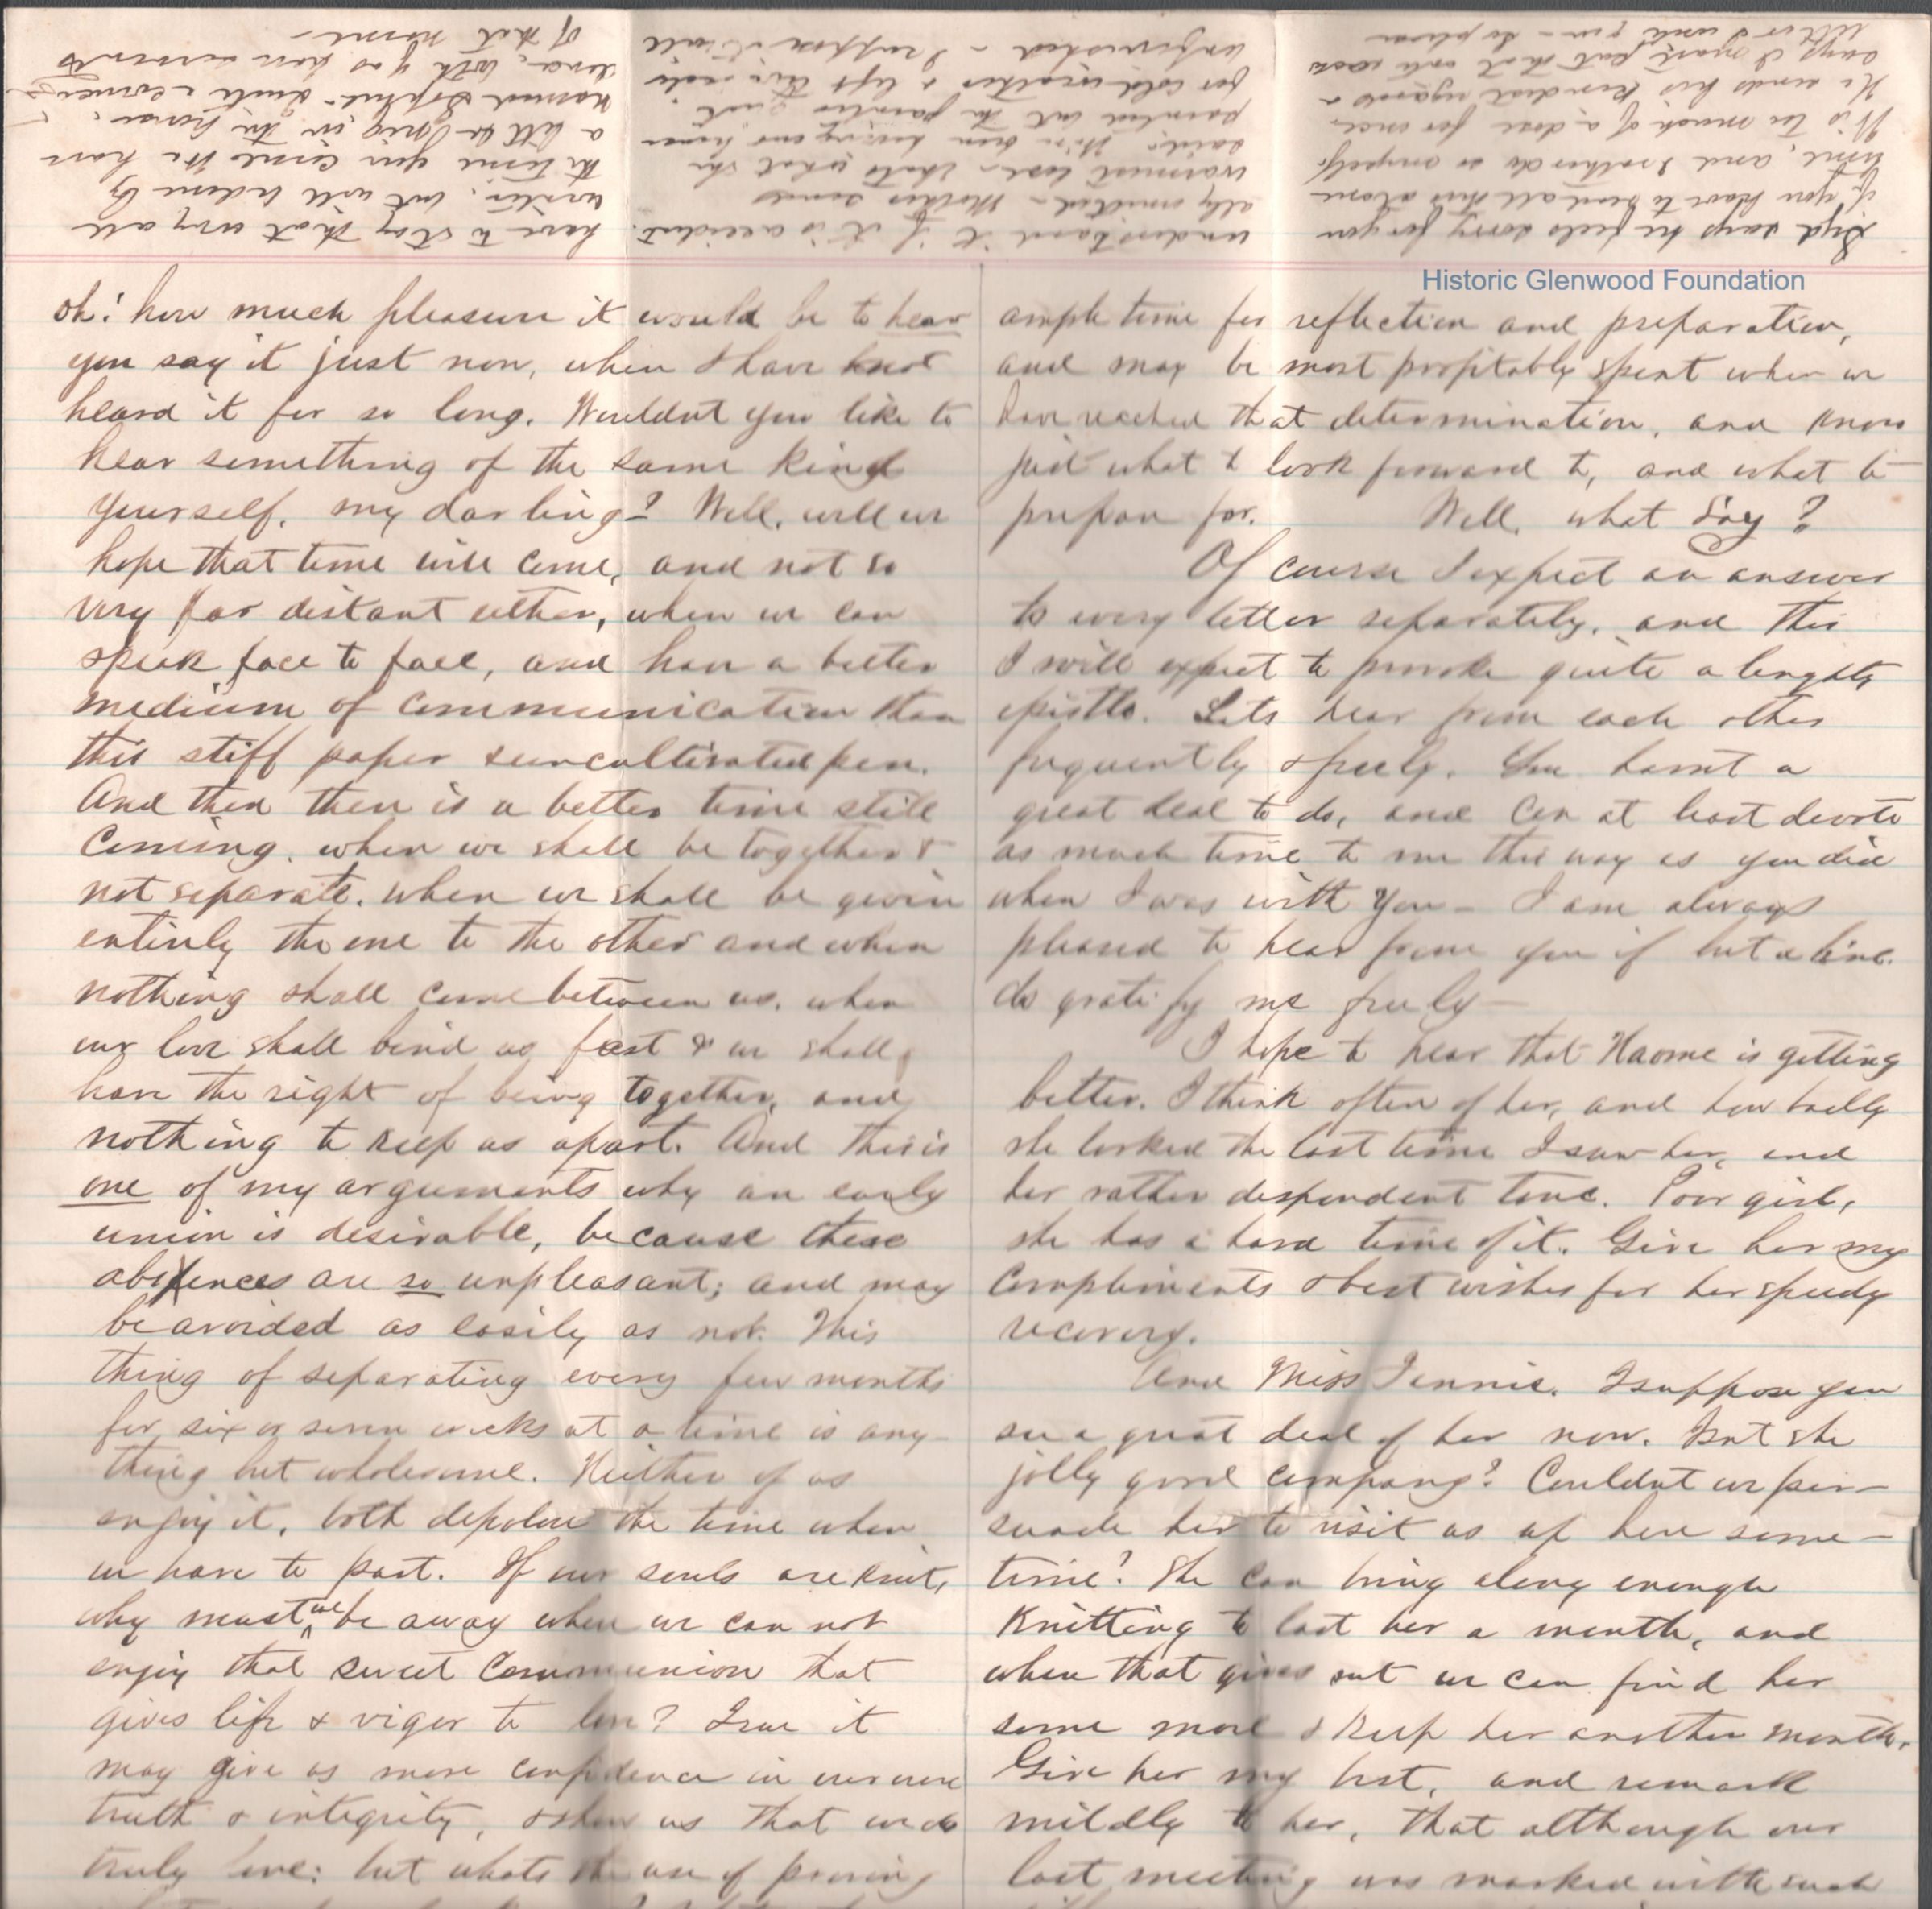 Syd says he feels sorry for you
if you have to read all this alone
time, and I rather do so myself
It is too much of a dose for once
He sends his kindest regards &
says I must put that in
letter I send you - so please
understand it if it is accident-
ally omitted - Mother sends
warmest love - that's what she
said. We've been having our house
painted but the painter quit
for cold weather & left this side
unfinished - I suppose it will
have to stay that way all
winter, but will be done by
the time you come. We have
a little in the house,
named Sophie - quite a
of that name -
Historic Glenwood Foundation
oh! how much pleasure it would be to hear
you say it just now, when I have not
heard it for so long. Wouldnt you like to
hear something of the same kind
yourself, my darling? Well, will we
hope that time will come, and not so
very far distant either, when we can
speak face to face, and have a better
medium of communication than
this stiff paper & uncultivated pen.
And then there is a better time still
coming, when we shall be together &
not separate, when we shall be given
entirely the one to the other and when
nothing shall come between us, when
our love shall bind us fast & we shall
have the right of being together, and
nothing to keep us apart. And this is
one of my arguments why an early
union is desirable, because these
absences are so unpleasant; and may
be avoided as easily as not. This
thing of separating every few months
for six or seven weeks at a time is any-
thing but wholesome. Neither of us
enjoy it, both deplore the time when
we have to part. If our souls are knit,
why must we be away when we can not
enjoy that sweet communion that
gives life & vigor to love? True it
may give us more confidence in our own
truth & integrity, & show us that we do
truly love: but whats the use of proving
ample time for reflection and preparation,
and may be most profitably spent when we
have reached that determination, and know
just what to look forward to, and what to
prepare for. Well, what say?
Of course I expect an answer
to every letter separately, and this
I will expect to provoke quite a lengthy
epistle. Lets hear from each other
frequently & freely. You havnt a
great deal to do, and can at least devote
as much time to me this way as you did
when I was with you - I am always
pleased to hear from you if but a line.
do gratify me freely -
I hope to hear that Naome is getting
better. I think often of her, and how badly
she looked the last time I saw her, and
her rather despondent tone. Poor girl,
she has a hard time of it. Give her my
compliments & best wishes for her speedy
recovery.
And Miss Jennie. I suppose you
see a great deal of her now. Isnt she
jolly good company? Couldnt we per-
suade her to visit us up here some-
time? She can bring along enough
knitting to last her a month, and
when that gives out we can find her
some more & keep her another month.
Give her my best, and remark
mildly to her, that although our
last meeting was marked with such